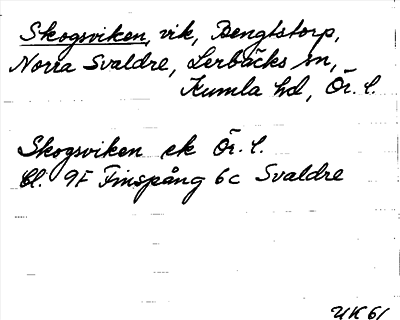 Skogsviken, vik, Bengtstorp,
Norra Svaldre, Lerbäcks sn,
Kumla hd, Ör. l.
Skogsviken ek Ör. l.
bl. 9F Finspång 6c Svaldre
UK 61